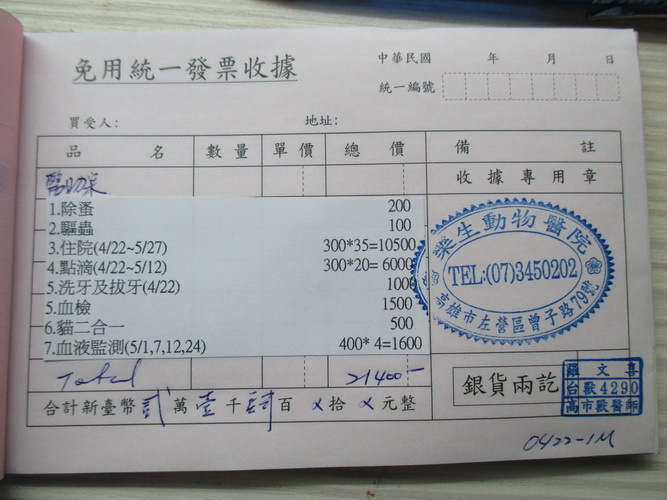 免用統一發票收據
中華民國 年 月 日
統一編號
買受人: 地址:
品名 數量 單價 總價 備註
收據專用章
1.除蚤 200
2.驅蟲 100
3.住院(4/22~5/27) 300*35=10500
4.點滴(4/22~5/12) 300*20= 6000
5.洗牙及拔牙(4/22) 1000
5.血檢 1500
6.貓二合一 500
7.血液監測(5/1,7,12,24) 400* 4=1600
樂生動物醫院
TEL:(07)3450202
高雄市左營區曾子路79號
Total 21400-
銀貨兩訖
文喜
台獸4290
高市獸醫師
合計新臺幣貳萬壹千肆百 x 拾 x 元整
0422-1M